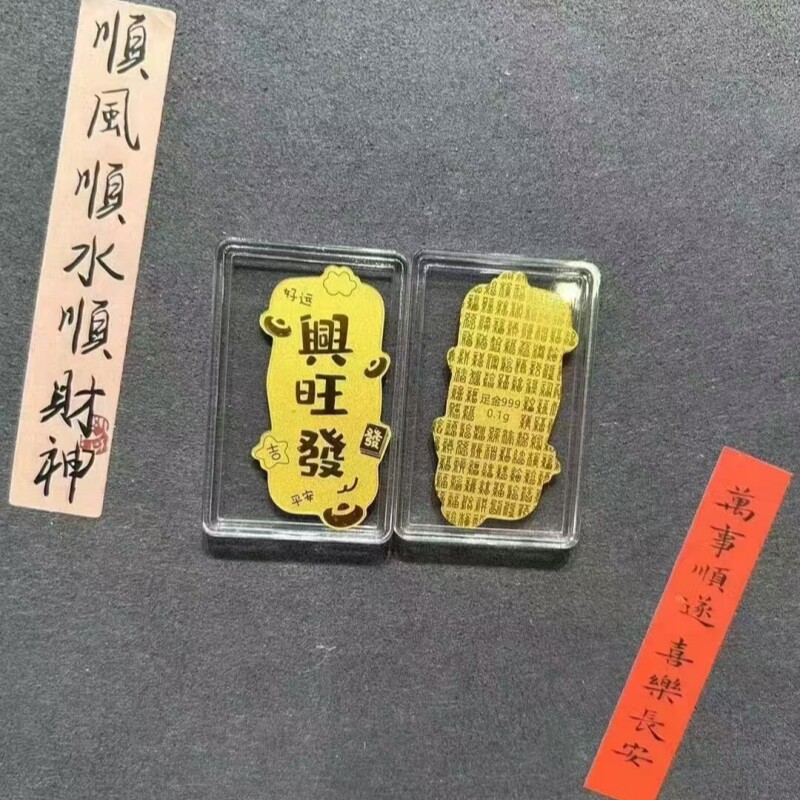 順風順水順財神
好运
興旺發
發
吉
平安
足金999
0.1g
萬事順遂 喜樂長安